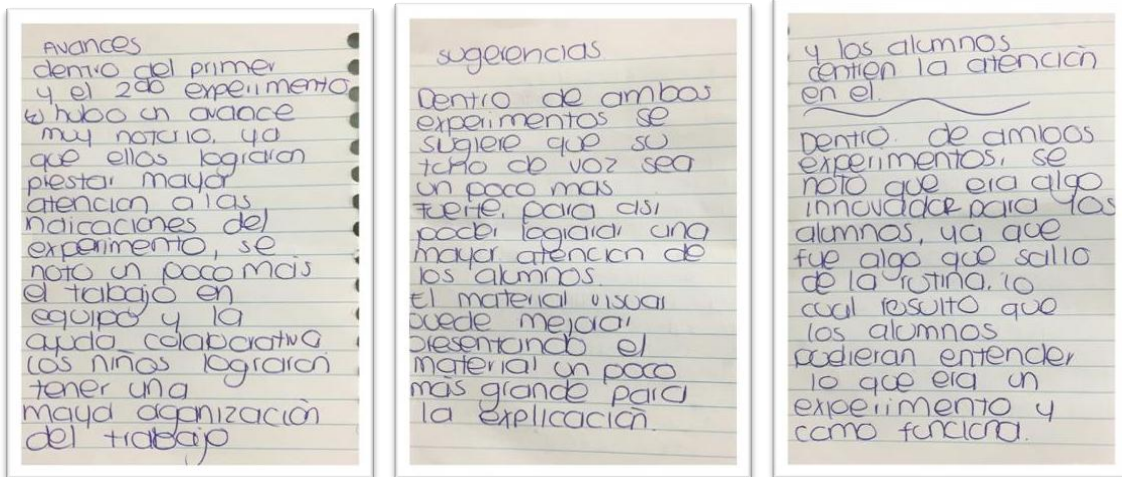 Avances
dentro del primer
y el 2do experimento
hubo un avance
muy notorio, ya
que ellos lograron
prestar mayor
atencion a las
indicaciones del
experimento, se
noto un poco mas
el trabajo en
equipo y la
ayuda colaborativa
los niños lograron
tener una
mayor organización
del trabajo
sugerencias.
Dentro de ambos
experimentos se
sugiere que su
tono de voz sea
un poco mas
fuerte, para asi
poder lograr una
mayor atención de
los alumnos.
El material visual
puede mejorar
presentando el
material un poco
más grande para
la explicación.
y los alumnos
centren la atención
en el.
Dentro de ambos
experimentos, se
noto que era algo
innovador para los
alumnos, ya que
fue algo que salio
de la rutina, lo
cual resulto que
los alumnos
pudieran entender
lo que era un
experimento y
como funciona.